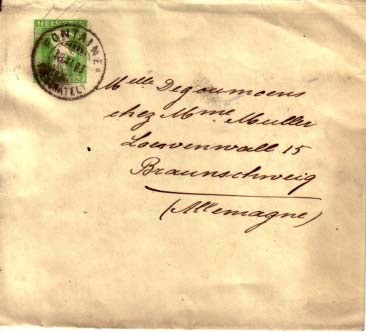 HELVETIA
FONTAINES
(NEUCHATEL)
Melle Degoumoens
chez Mme Muller
Loewenwall 15
Braunschweig
(Allemagne)